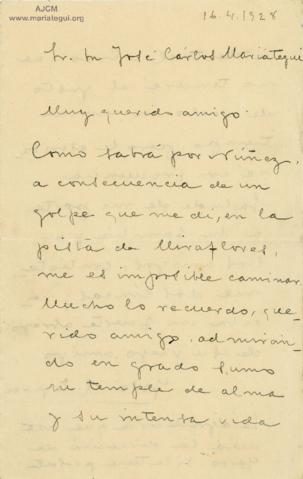 AJCM
www.mariategui.org
16.4.1928
Sr. Dn José Carlos Mariátegui
Muy querido amigo:
Como sabrá por Núñez,
a consecuencia de un
golpe que me di, en la
pista de Miraflores,
me es imposible caminar.
Mucho lo recuerdo, que-
rido amigo, admiran-
do en grado sumo
su temple de alma
y su intensa vida